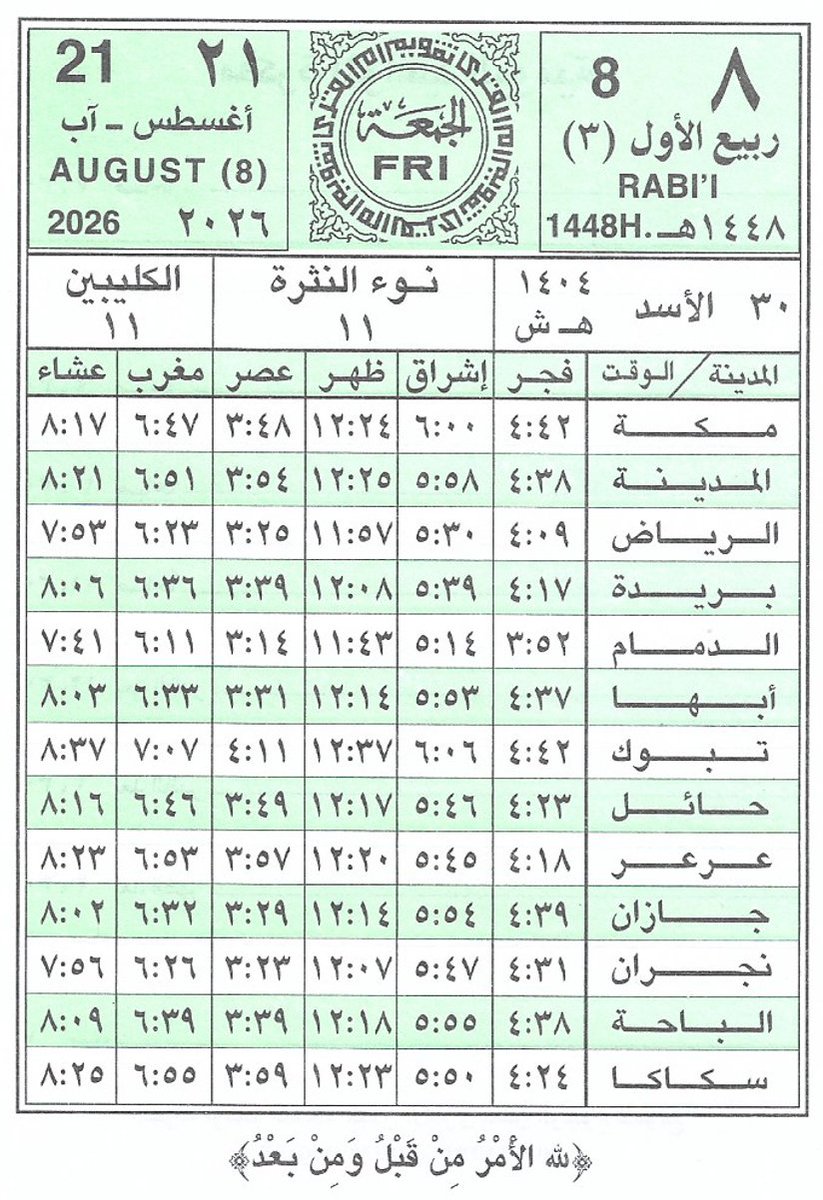 ٨ 8
ربيع الأول (٣)
RABI'I
١٤٤٨هـ 1448H.
تقويم أم القرى
الجمعة
FRI
٢١ 21
أغسطس - آب
AUGUST (8)
٢٠٢٦ 2026
٣٠ الأسد ١٤٠٤ هـ ش
نوء النثرة
١١
الكليبين
١١
المدينة / الوقت فجر إشراق ظهر عصر مغرب عشاء
مكة ٤:٤٢ ٦:٠٠ ١٢:٢٤ ٣:٤٨ ٦:٤٧ ٨:١٧
المدينة ٤:٣٨ ٥:٥٨ ١٢:٢٥ ٣:٥٤ ٦:٥١ ٨:٢١
الرياض ٤:٠٩ ٥:٣٠ ١١:٥٧ ٣:٢٥ ٦:٢٣ ٧:٥٣
بريدة ٤:١٧ ٥:٣٩ ١٢:٠٨ ٣:٣٩ ٦:٣٦ ٨:٠٦
الدمام ٣:٥٢ ٥:١٤ ١١:٤٣ ٣:١٤ ٦:١١ ٧:٤١
أبها ٤:٣٧ ٥:٥٣ ١٢:١٤ ٣:٣١ ٦:٣٣ ٨:٠٣
تبوك ٤:٤٢ ٦:٠٦ ١٢:٣٧ ٤:١١ ٧:٠٧ ٨:٣٧
حائل ٤:٢٣ ٥:٤٦ ١٢:١٧ ٣:٤٩ ٦:٤٦ ٨:١٦
عرعر ٤:١٨ ٥:٤٥ ١٢:٢٠ ٣:٥٧ ٦:٥٣ ٨:٢٣
جازان ٤:٣٩ ٥:٥٤ ١٢:١٤ ٣:٢٩ ٦:٣٢ ٨:٠٢
نجران ٤:٣١ ٥:٤٧ ١٢:٠٧ ٣:٢٣ ٦:٢٦ ٧:٥٦
الباحة ٤:٣٨ ٥:٥٥ ١٢:١٨ ٣:٣٩ ٦:٣٩ ٨:٠٩
سكاكا ٤:٢٤ ٥:٥٠ ١٢:٢٣ ٣:٥٩ ٦:٥٥ ٨:٢٥
﴿لله الأَمْرُ مِنْ قَبْلُ وَمِنْ بَعْدُ﴾